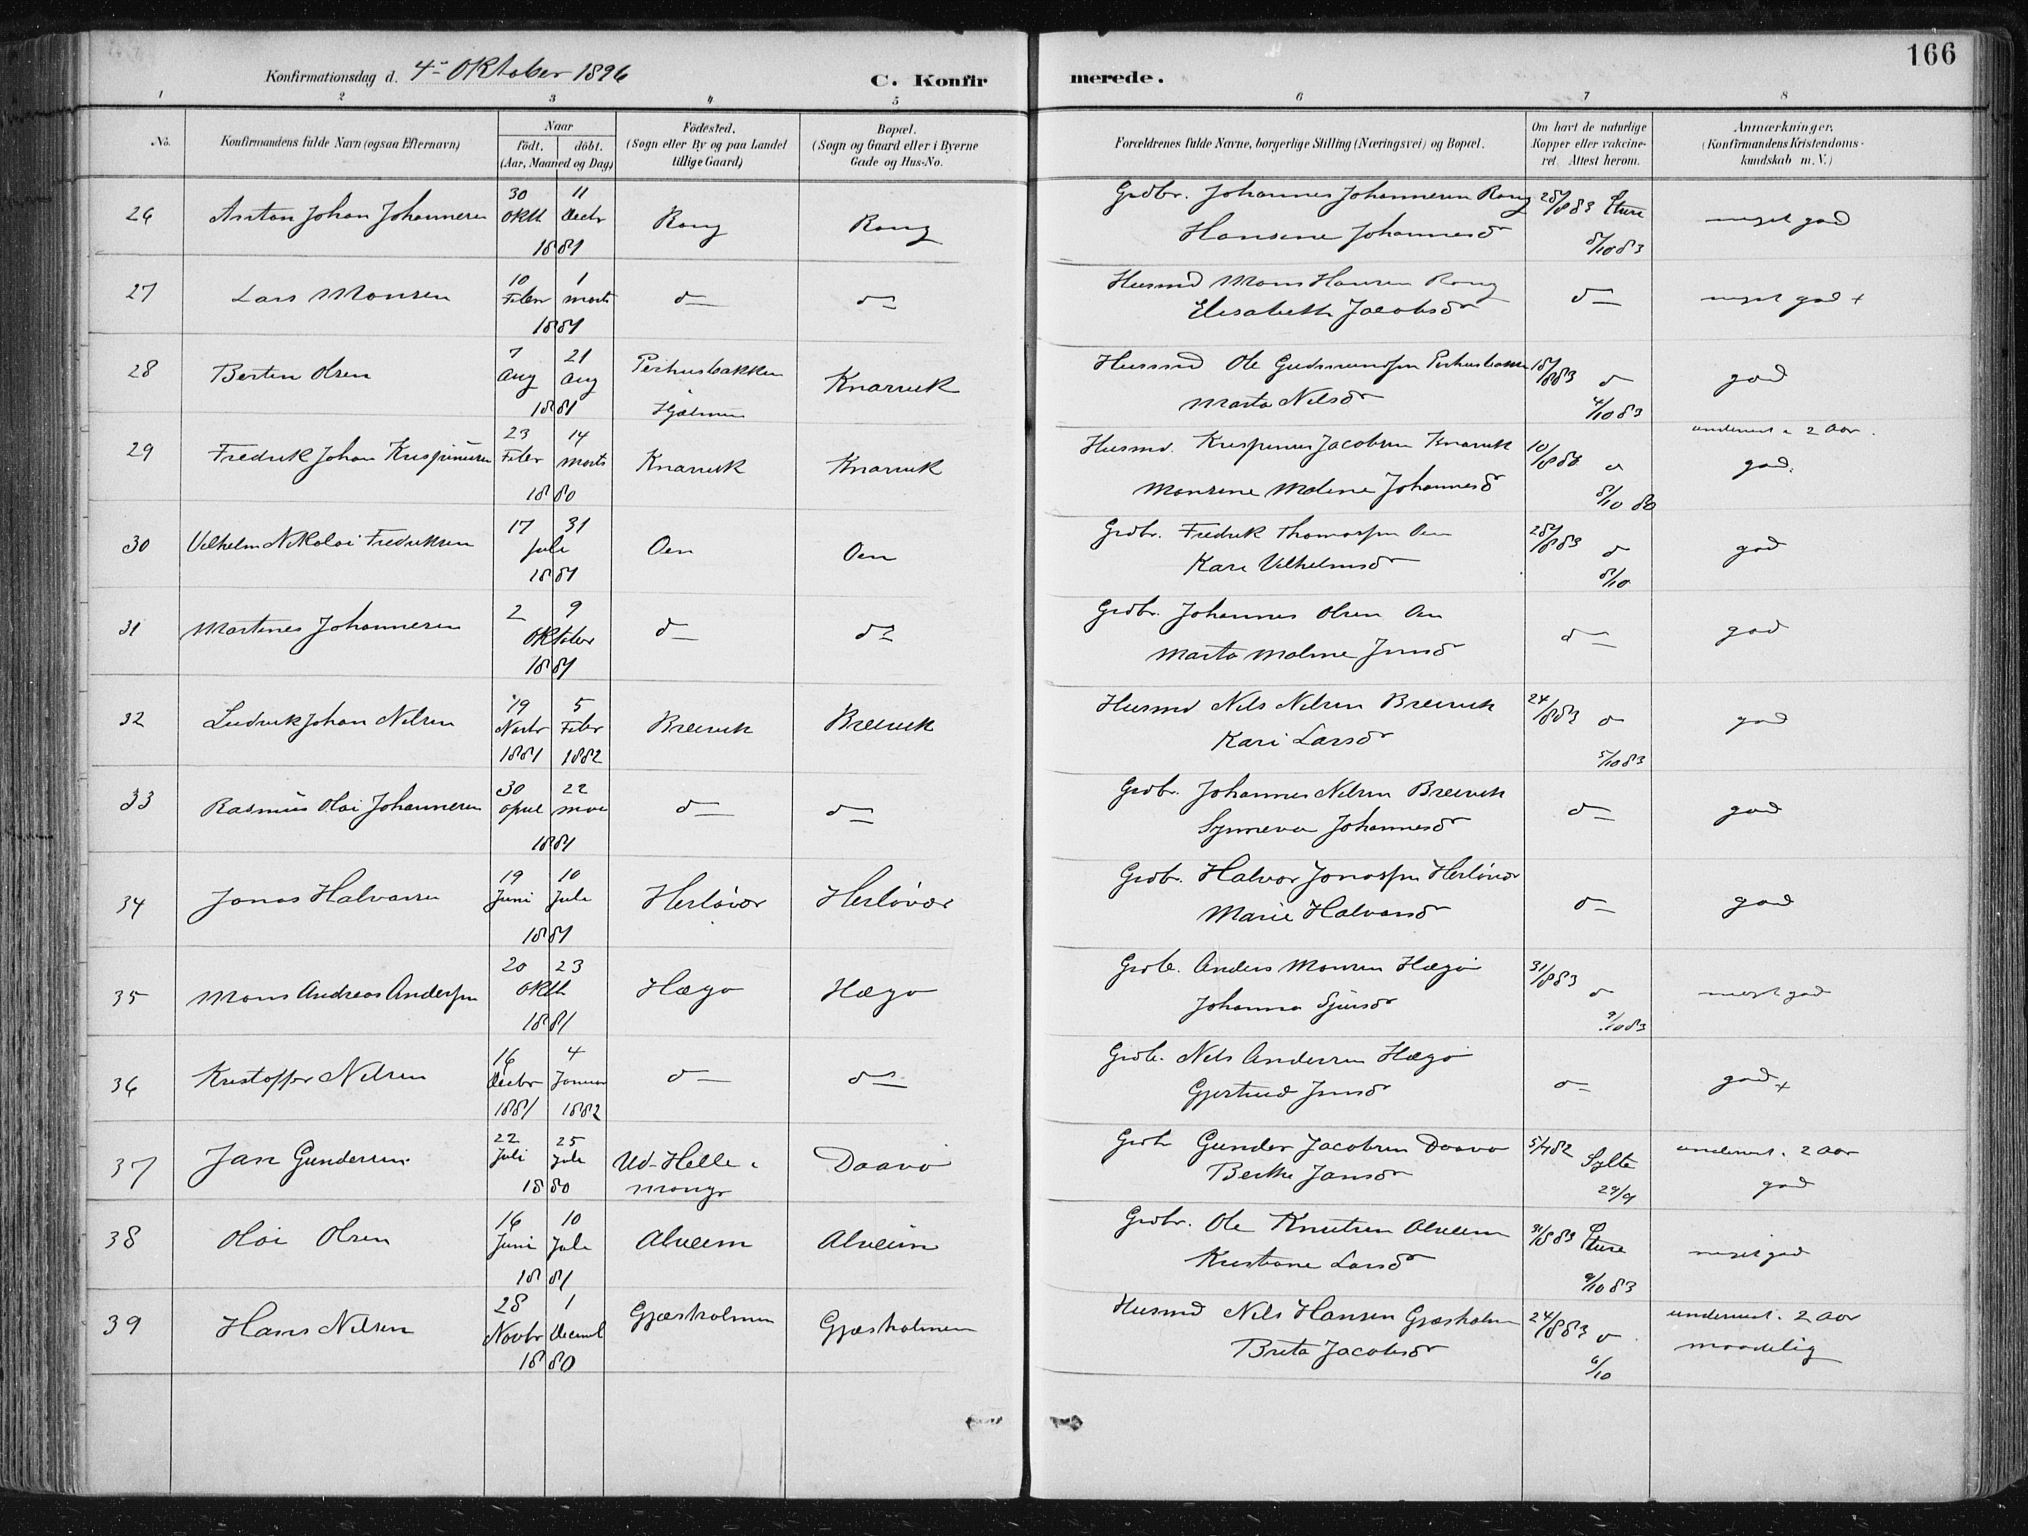 166
Konfirmationsdag d. 4de Oktober 1896 C. Konfir merede.
1 2 3 4 5 6 7 8
No. Konfirmandens fulde Navn (ogsaa Efternavn) Naar födt. döbt. (Aar, Maaned og Dag) Födested. (Sogn eller By og paa Landet tillige Gaard) Bopæl. (Sogn og Gaard eller i Byerne Gade og Hus-No. Forældrenes fulde Navne, borgerlige Stilling (Næringsvei) og Bopæl. Om havt de naturlige Kopper eller vakcineret. Attest herom. Anmærkninger. (Konfirmandens Kristendomskundskab m.V.)
26 Anton Johan Johannesen 30 Oktb 11 Decbr 1881 Rong Rong Grdbr. Johannes Johannesen Rong 28/8 83 Sture
Hansine Johannesd 8/10 83 meget god
27 Lars Monsen 10 Febr 1 Marts 1881 d— d— Husmd Mons Hansen Rong
Elisabeth Jacobsd d— meget god +
28 Bertin Olsen 7 Aug 21 Aug 1881 Perhusbakken Hjelmen Knarvik Husmd Ole Gudmundsen Perhusbakken 18/8 83 d
Marta Nilsd 4/10 83 god
29 Fredrik Johan Krispinusen 23 Febr 14 Marts 1880 Knarvik Knarvik Husmd. Krispinus Jacobsen Knarvik 10/8 80 d
Monsine Malene Johannesd 8/10 80 undervist i 2 Aar. god.
30 Vilhelm Nikolai Fredriksen 17 31 Juli 1881 Oen Oen Grdbr. Fredrik Thomassen Oen 28/8 83 d
Kari Vilhelmsd 8/10 god
31 Martines Johannesen 2 9 Oktober 1881 d— d— Grdbr. Johannes Olsen Oen
Marta Maline Jensd d— god
32 Ludvik Johan Nilsen 19 Novbr 1881 5 Febr 1882 Breivik Breivik Husmd Nils Nilsen Breivik 24/8 83 d
Kari Larsd 5/10 83 god
33 Rasmus Olai Johannesen 30 April 22 Mai 1881 d— d— Grdbr. Johannes Nilsen Breivik
Synneva Johannesd d— god
34 Jonas Halvorsen 19 Juni 10 Juli 1881 Herløvær Herløvær Grdbr. Halvor Jonassen Herløvær
Marie Halvorsd d— god
35 Mons Andreas Andersen 20 23 Oktb 1881 Hægø Hægø Grdb. Anders Monsen Hægø 31/8 83 d
Johanna Sjursd 9/10 83 meget god
36 Kristoffer Nilsen 16 Decbr 1881 4 Januar 1882 d— d— Grdb. Nils Andersen Hægø
Gjertrud Jensd d— god +
37 Jan Gundersen 22 Juli 25 Juli 1880 Ud-Helle i Manger Daavø Grdb Gunder Jacobsen Daavø 5/7 82 Sylta
Berthe Jansd 29/9 undervist i 2 Aar god
38 Olai Olsen 16 Juni 10 Juli 1881 Alveim Alveim Grdbr. Ole Knutsen Alveim 31/8 83 Sture
Kristane Larsd 9/10 83 meget god
39 Hans Nilsen 28 Novbr 1 Decemb 1880 Gjæsholmen Gjæsholmen Husmd Nils Hansen Gjæsholm 24/8 83 d
Brita Jacobsd 6/10 undervist i 2 Aar maadelig